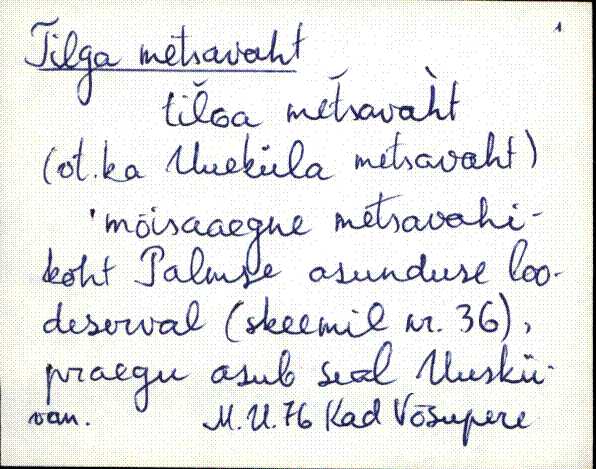 1
Tilga metsavaht
tilGa metsavaht
(öt.ka Uueküla metsavaht)
'mõisaaegne metsavahi-
koht Palmse asunduse loo-
deserval (skeemil nr. 36),
praegu asub seal Uuskü-
van. M.U.76 Kad Võsupere